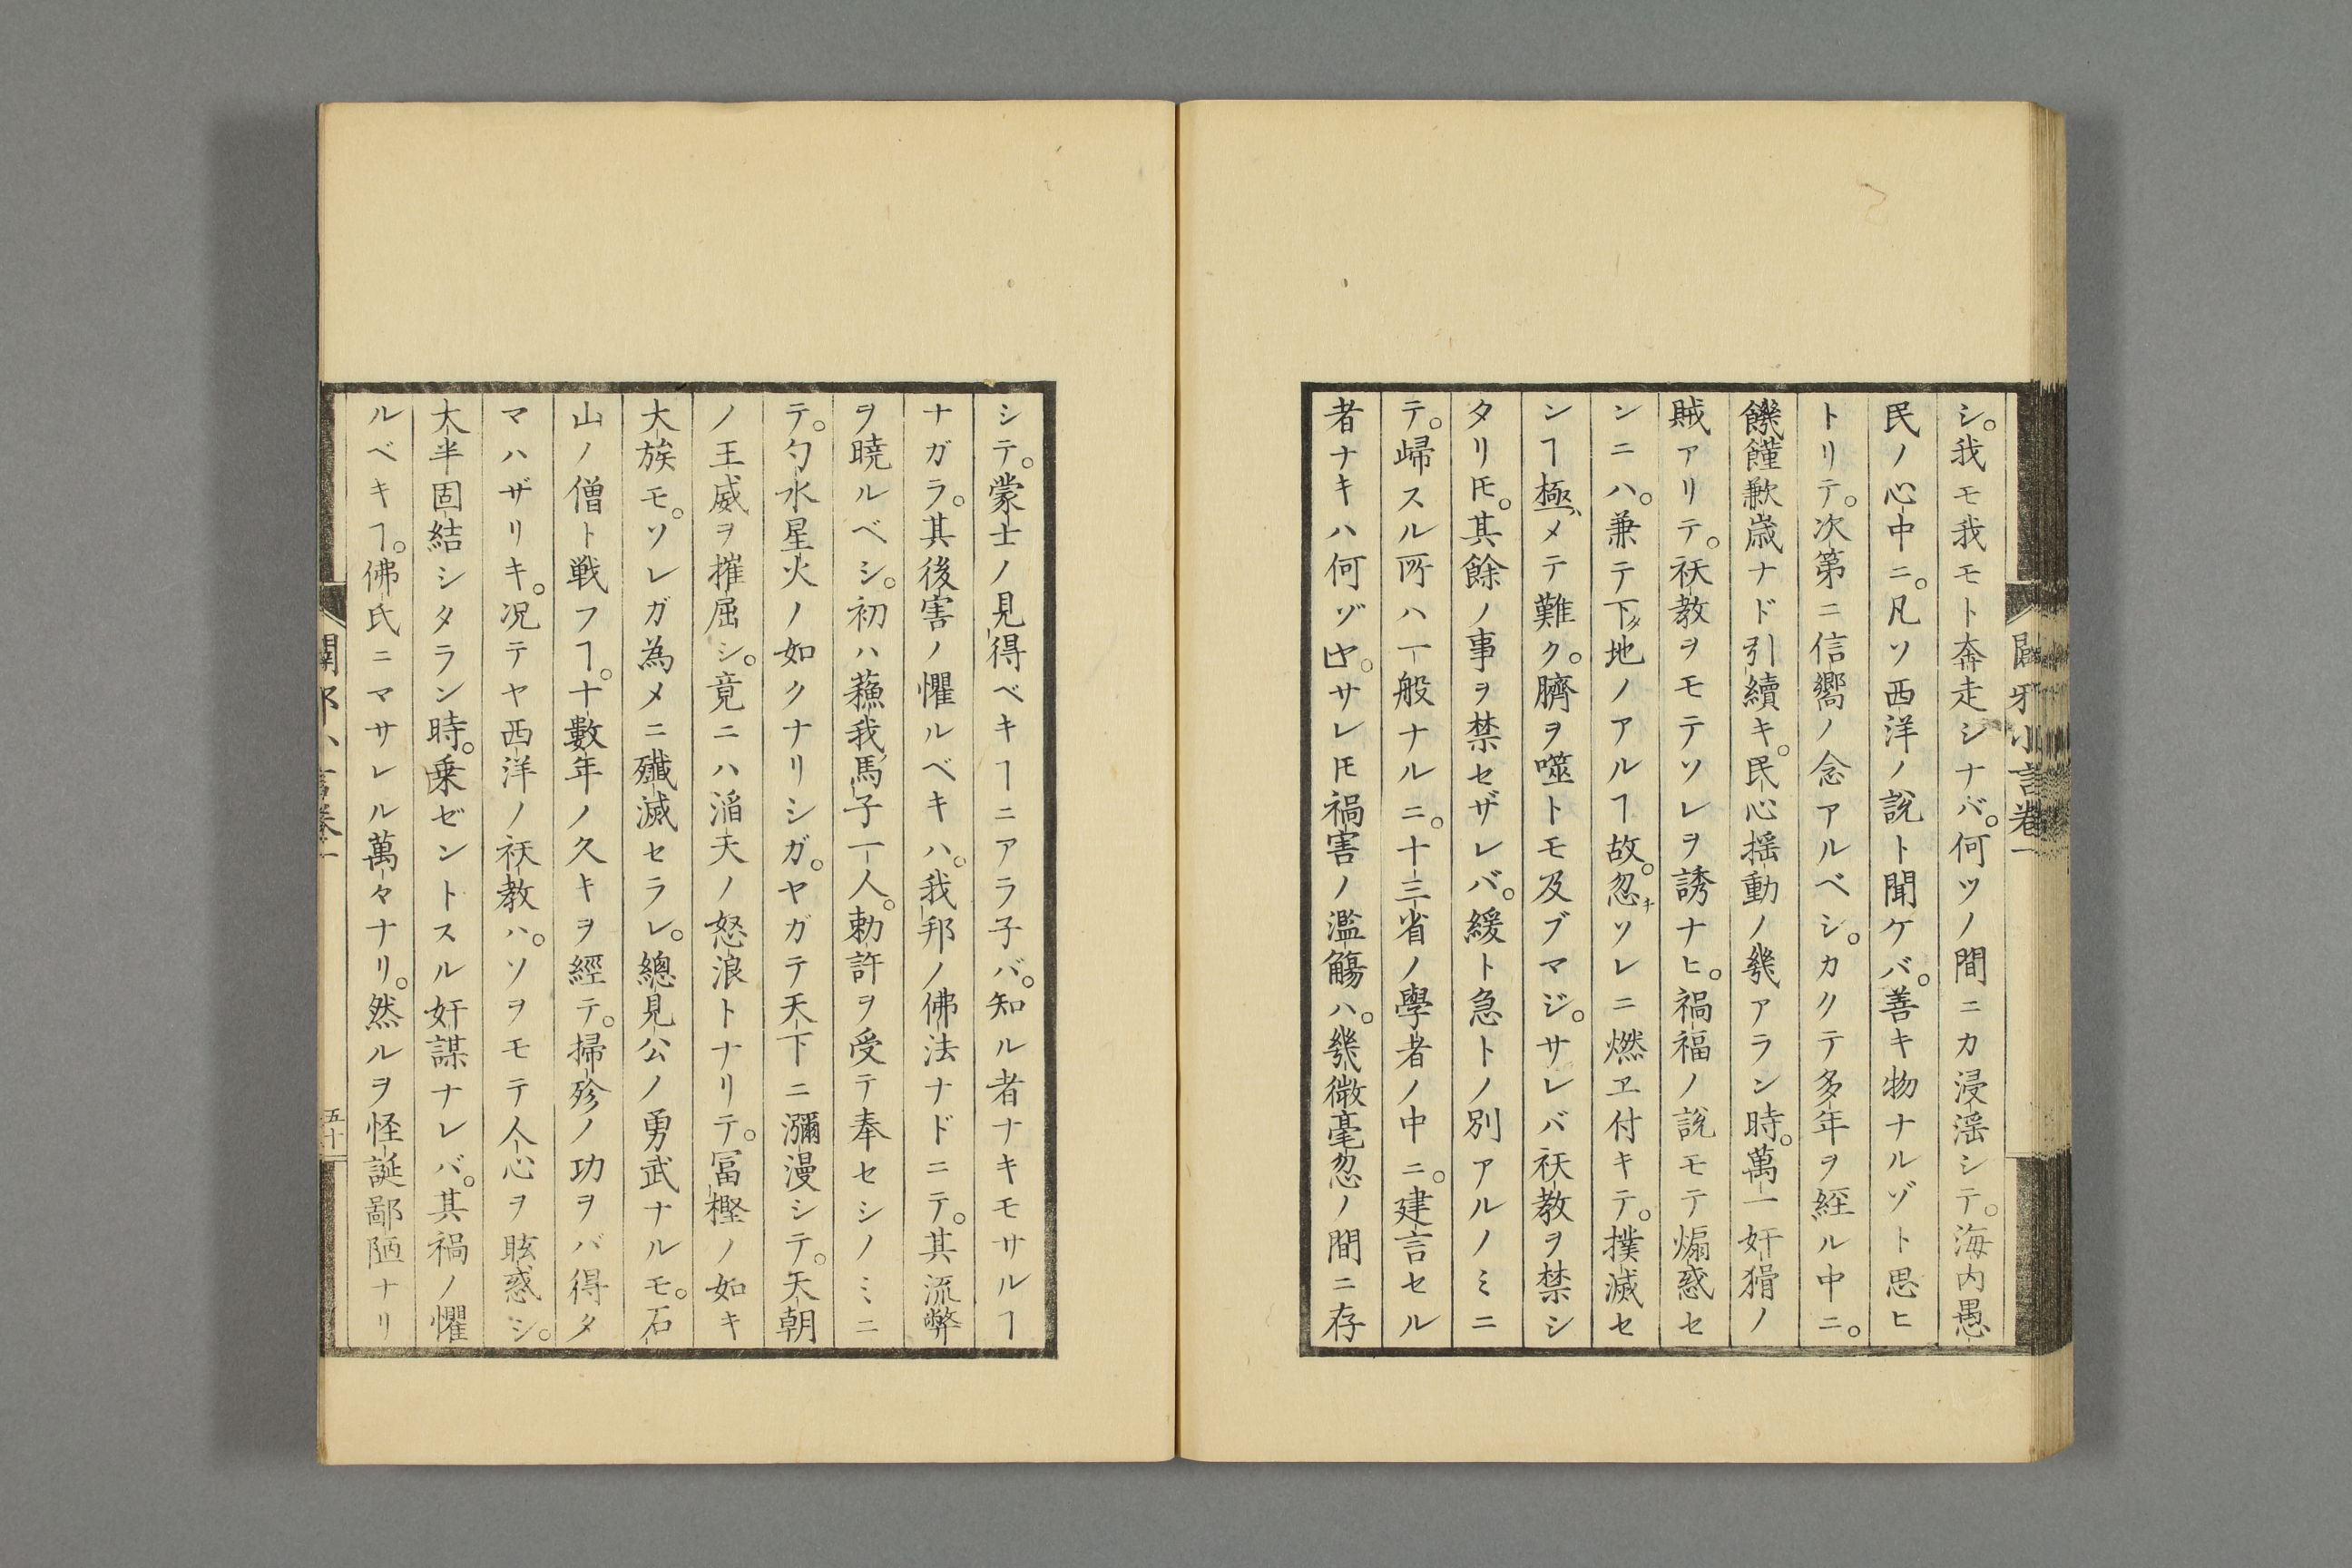 闢邪小言卷一
シ。我モ我モト奔走シナバ。何ツノ間ニカ浸淫シテ。海内愚
民ノ心中ニ。凡ソ西洋ノ說ト聞ケバ。善キ物ナルゾト思ヒ
トリテ。次第ニ信嚮ノ念アルベシ。カクテ多年ヲ経ル中ニ。
饑饉歉歲ナド引續キ。民心搖動ノ幾アラン時。萬一奸猾ノ
賊アリテ。祆教ヲモテソレヲ誘ナヒ。禍福ノ說モテ煽惑セ
ンニハ。兼テ下タ地ノアルヿ故。忽キソレニ燃ヱ付キテ。撲滅セ
ンヿ極ハメテ難ク。臍ヲ噬トモ及ブマジ。サレバ祆教ヲ禁シ
タリ𪜈。其餘ノ事ヲ禁セザレバ。緩ト急トノ別アルノミニ
テ。歸スル所ハ一般ナルニ。十三省ノ學者ノ中ニ。建言セル
者ナキハ何ゾヤ。サレ𪜈禍害ノ濫觴ハ。幾微毫忽ノ間ニ存
シテ。蒙士ノ見得ベキヿニアラ子バ。知ル者ナキモサルヿ
ナガラ。其後害ノ懼ルベキハ。我邦ノ佛法ナドニテ。其流弊
ヲ曉ルベシ。初ハ蘓我馬子一人。勅許ヲ受テ奉セシノミニ
テ。勺水星火ノ如クナリシガ。ヤガテ天下ニ瀰漫シテ。天朝
ノ王威ヲ摧屈シ。竟ニハ滔天ノ怒浪トナリテ。冨樫ノ如キ
大族モ。ソレガ為メニ殲滅セラレ。總見公ノ勇武ナルモ。石
山ノ僧ト戦フヿ。十數年ノ久キヲ經テ。掃殄ノ功ヲバ得タ
マハザリキ。况テヤ西洋ノ祆教ハ。ソヲモテ人心ヲ眩惑シ。
大半固結シタラン時。乗ゼントスル奸謀ナレバ。其禍ノ懼
ルベキヿ。佛氏ニマサレル萬々ナリ。然ルヲ怪誕鄙陋ナリ
闢邪小言卷一
五十